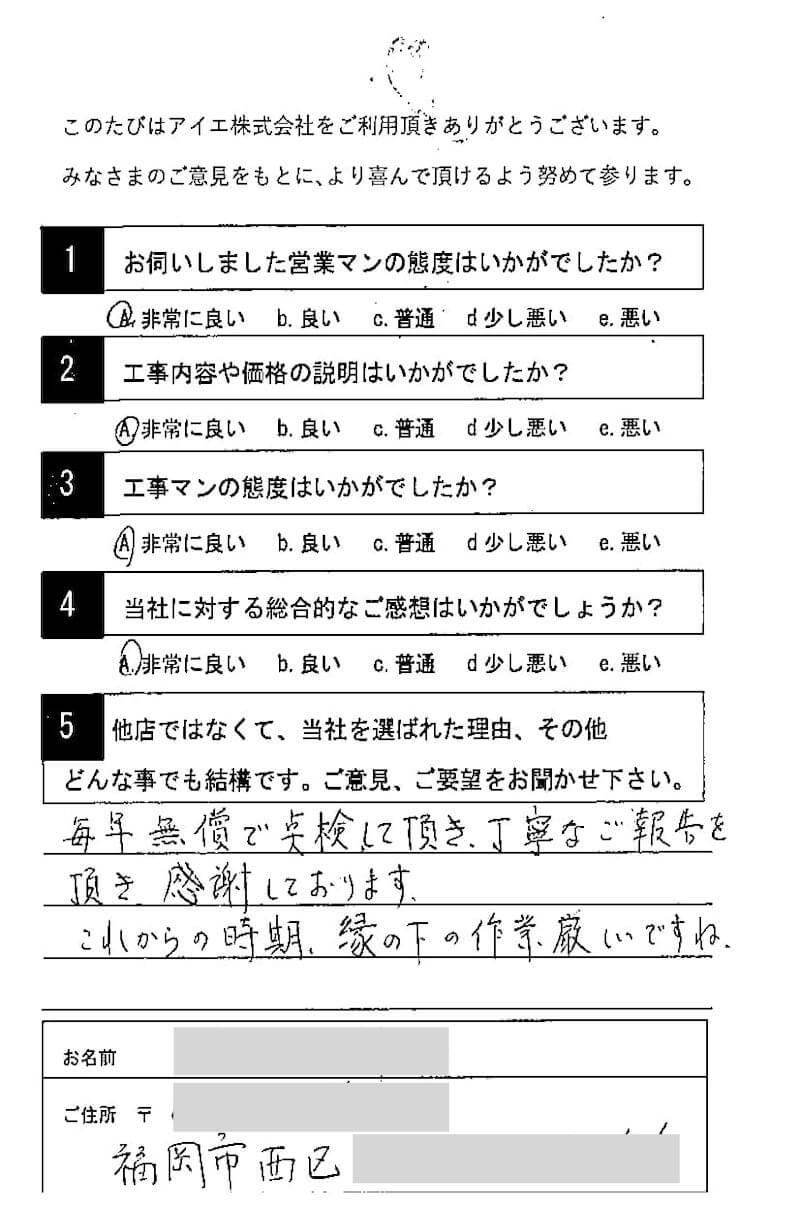 このたびはアイエ株式会社をご利用頂きありがとうございます。
みなさまのご意見をもとに、より喜んで頂けるよう努めて参ります。
1 お伺いしました営業マンの態度はいかがでしたか？
A. 非常に良い b. 良い c. 普通 d 少し悪い e. 悪い
2 工事内容や価格の説明はいかがでしたか？
A 非常に良い b. 良い c. 普通 d 少し悪い e. 悪い
3 工事マンの態度はいかがでしたか？
A 非常に良い b. 良い c. 普通 d 少し悪い e. 悪い
4 当社に対する総合的なご感想はいかがでしょうか？
A. 非常に良い b. 良い c. 普通 d 少し悪い e. 悪い
5 他店ではなくて、当社を選ばれた理由、その他
どんな事でも結構です。ご意見、ご要望をお聞かせ下さい。
毎年無償で点検して頂き、丁寧なご報告を
頂き感謝しております。
これからの時期、縁の下の作業、厳しいですね。
お名前
ご住所 〒
福岡市西区